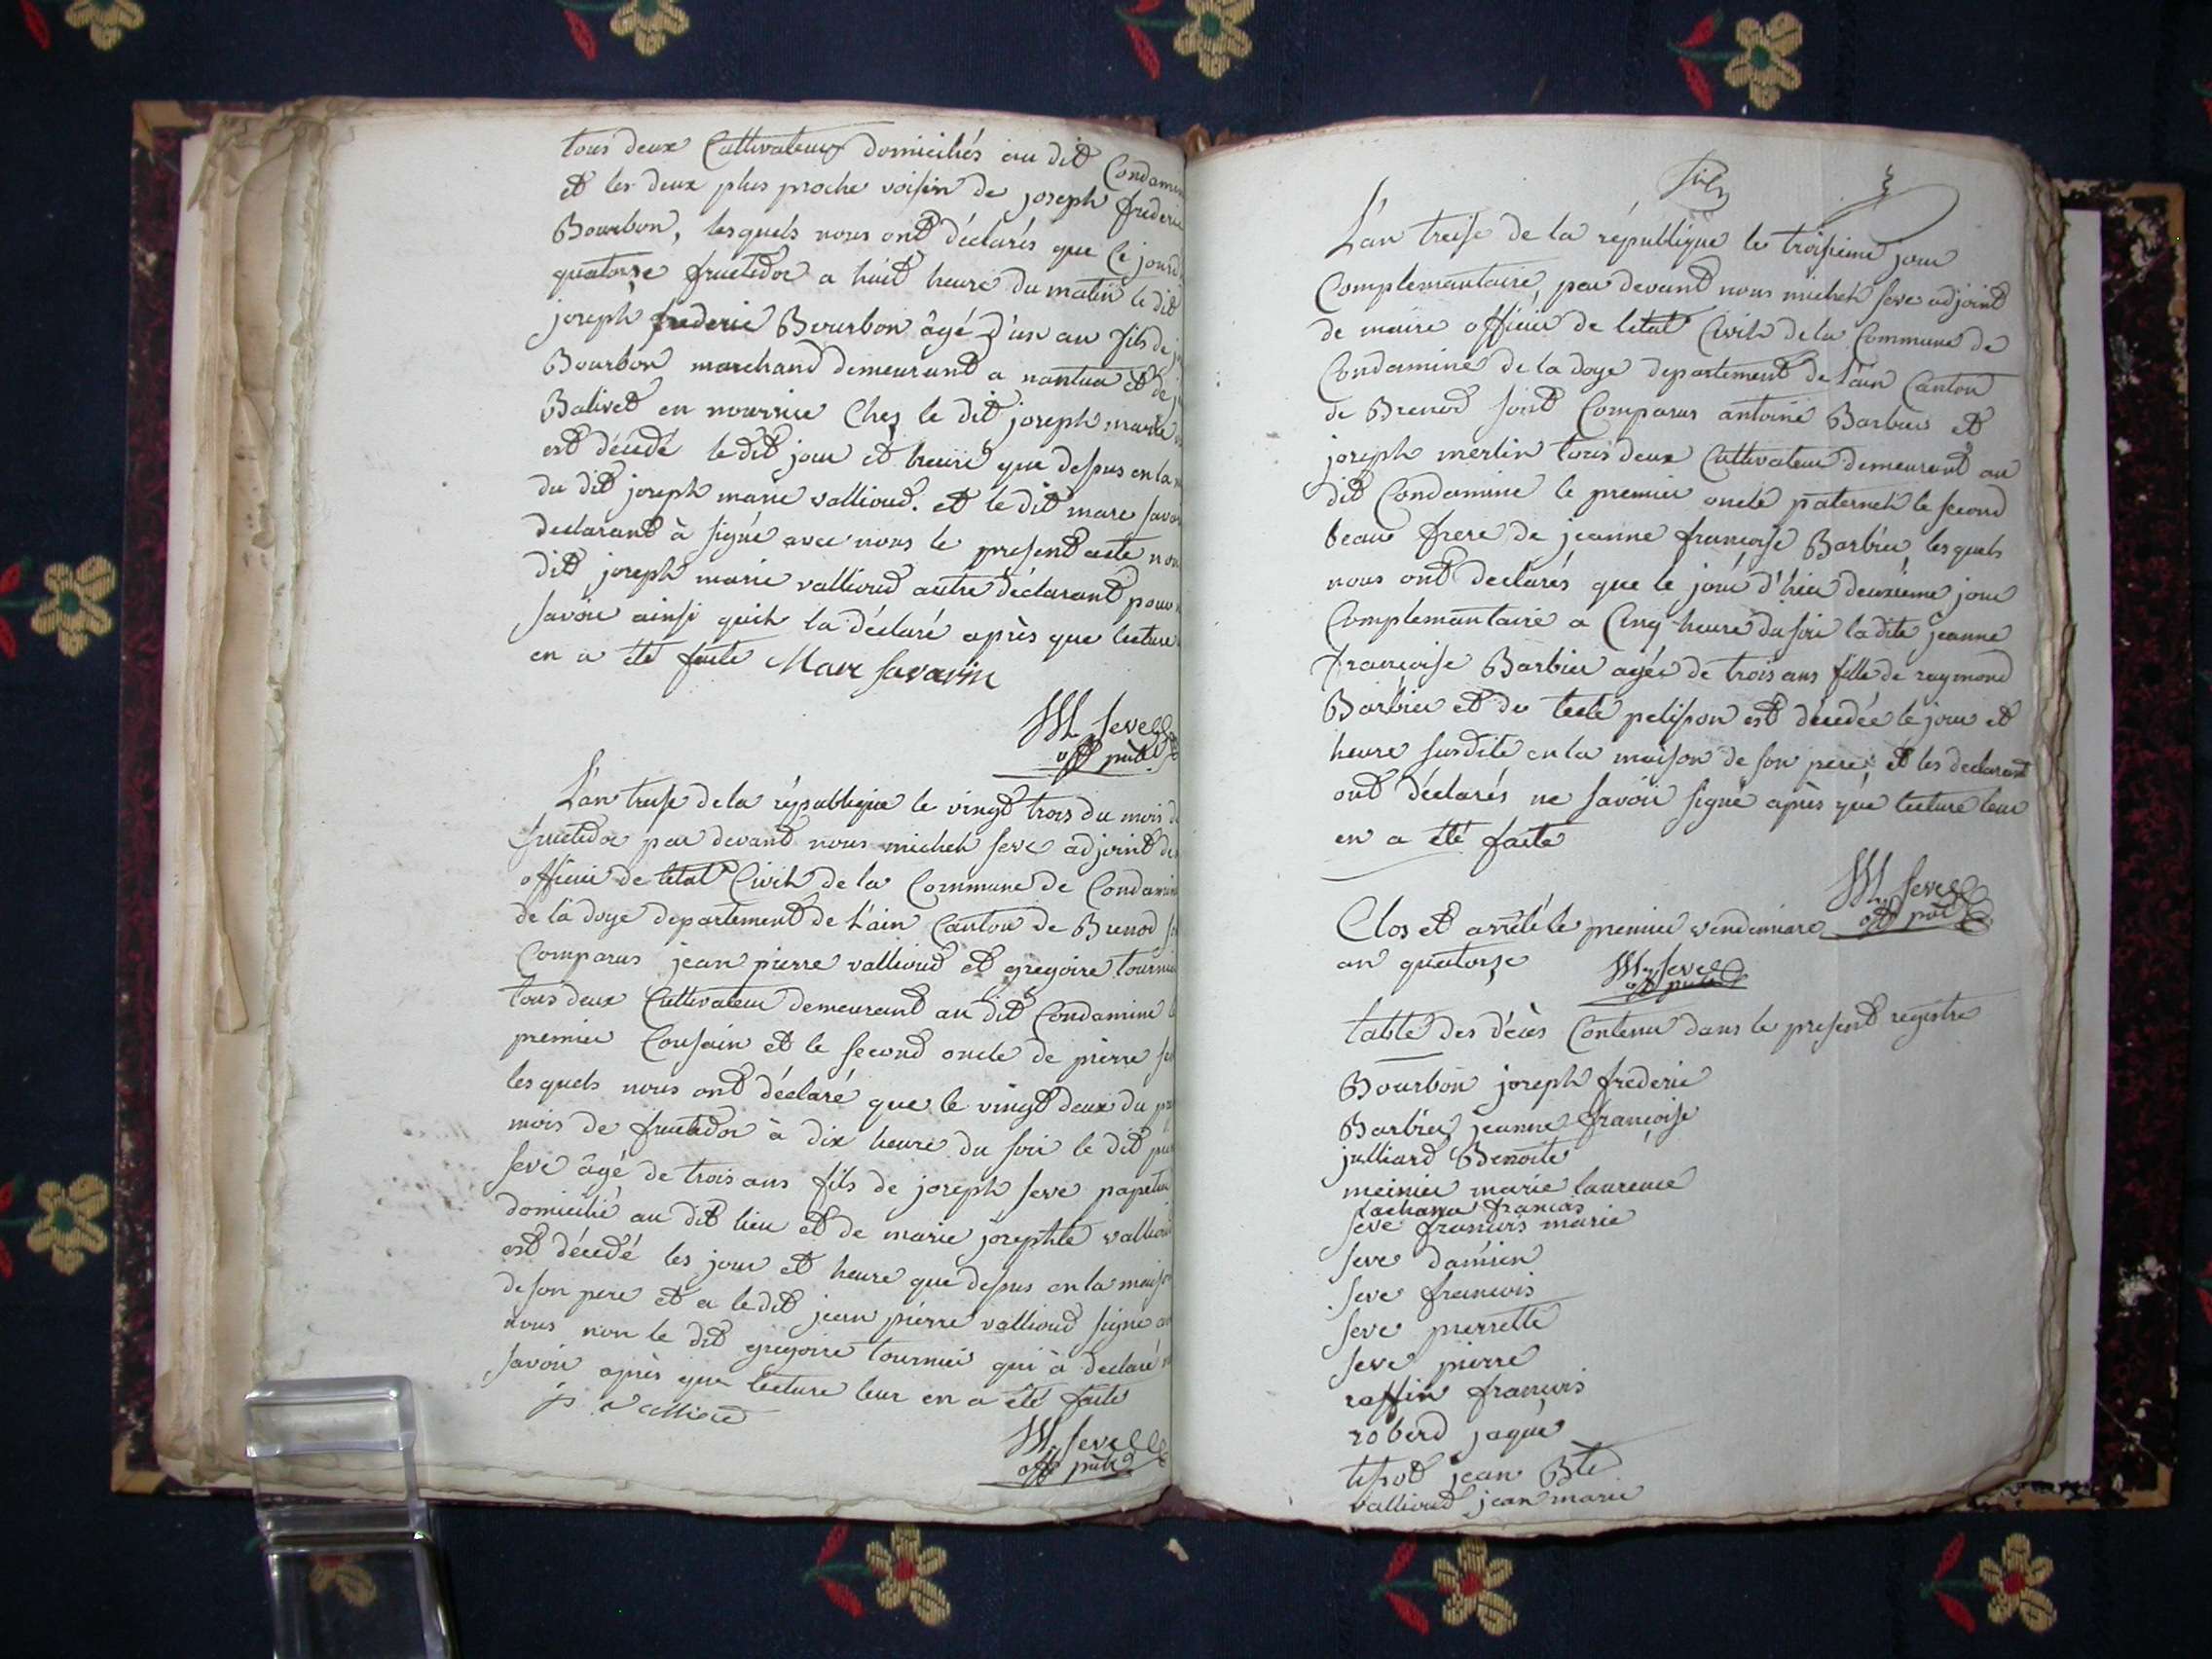 tous deux Cultivateurs domiciliés au dit Condamin
et les deux plus proche voisin de joseph frederic
Bourbon, lesquels nous ont déclarés que Ce jourd
quatorze fructidor a huit heure du matin le dit
joseph frederic Bourbon âgé d'un an fils de
Bourbon marchand demeurant a nantua et de
Balivet en nourrice Chez le dit joseph marie
est décédé le dit jour et heure que dessus en la
du dit joseph marie vallioud. et le dit marc savar
declarant à signé avec nous le present acte non
dit joseph marie vallioud autre déclarant pour
savoir ainsi quil la déclaré après que lecture
en a été faite Marc Savarin
M. Seve
off. pub.
L'an treise de la république le vingt trois du mois de
fructidor par devant nous michel seve adjoint de
officier de letat Civil de la Commune de Condamin
de la doye departement de L'ain Canton de Brenod
Comparus jean pierre vallioud et gregoire tournier
tous deux Cultivateur demeurant au dit Condamine le
premier Cousain et le second oncle de pierre
lesquels nous ont déclaré que le vingt deux du
mois de fructidor à dix heure du soir le dit
seve âgé de trois ans fils de joseph seve papetier
domicilié au dit lieu et de marie josephte vallioud
est décédé les jour et heure que dessus en la maison
de son pere et a le dit jean pierre vallioud signé
nous non le dit gregoire tournier qui à declaré
savoir après que lecture leur en a été faite
M. Seve
off. pub.
L'an treise de la république le troisieme jour
Complementaire, par devant nous michel seve adjoint
de maire officier de letat Civil de la Commune de
Condamine de la doye departement de L'ain Canton
de Brenod sont Comparus antoine Barbier et
joseph merlin tous deux Cultivateur demeurant au
dit Condamine le premier oncle paternel le second
beau frere de jeanne francoise Barbier, lesquels
nous ont declarés que le jour d'hier deuxieme jour
Complemantaire a Cinq heure du soir la dite jeanne
francoise Barbier agée de trois ans fille de raymond
Barbier et de tecle pelisson est décedée le jour et
heure susdite en la maison de son pere, et les declarant
ont déclarés ne savoir signé après que lecture leur
en a été faite
M. Seve
off. pub.
Clos et arrêté le premier vendemiaire
an quatorze M. Seve
off. pub.
table des décès Contenu dans le present registre
Bourbon joseph frederic
Barbier jeanne françoise
julliard Benoite
meinier marie laurence
francois
seve francois marie
seve damien
seve francois
seve pierrette
seve pierre
raffin francois
roberd jaque
tissot jean Bte
vallioud jean marie